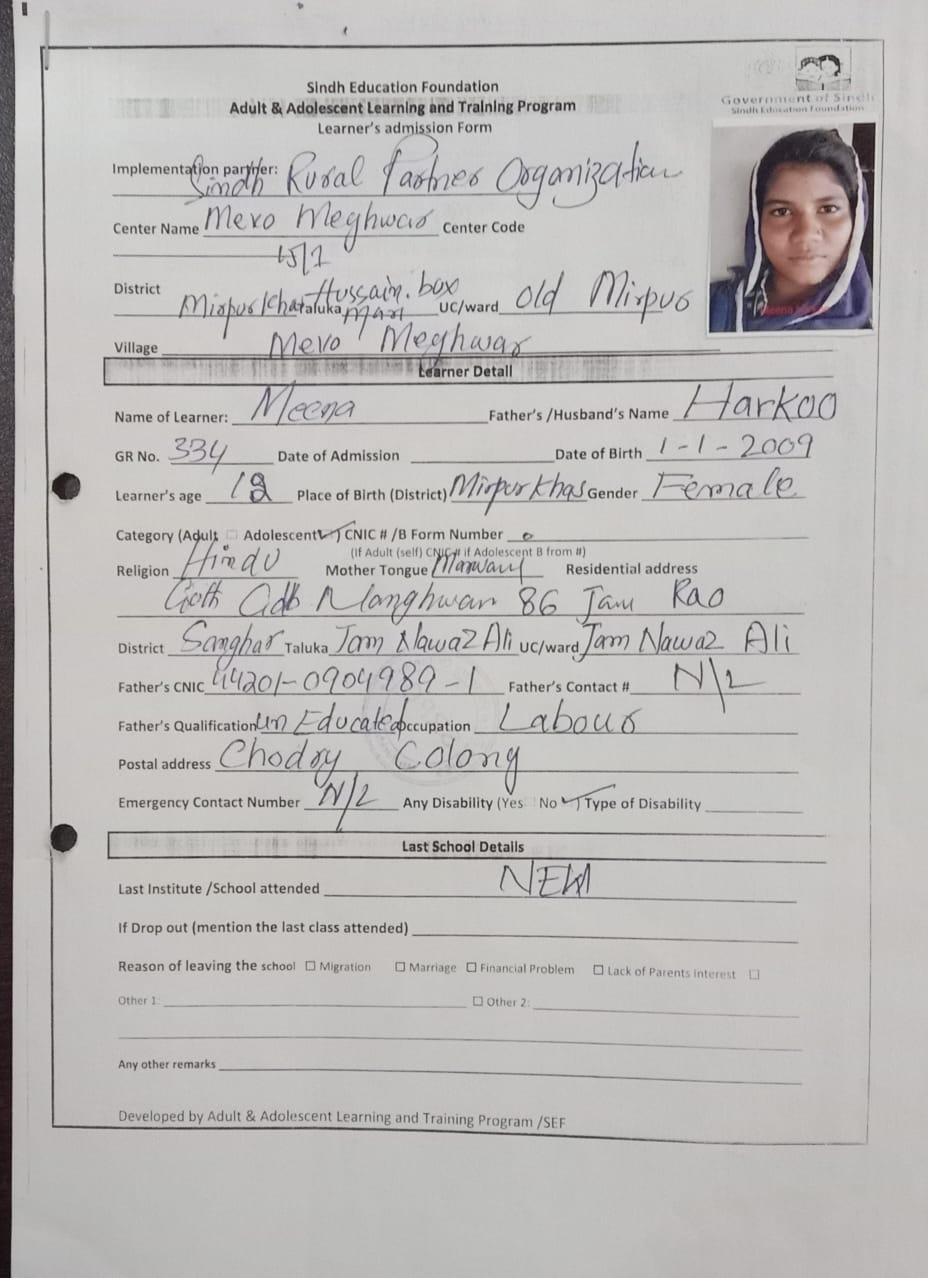 Sindh Education Foundation
Adult & Adolescent Learning and Training Program
Learner's admission Form
Government of Sindh
Sindh Education Foundation
Implementation partner: Sindh Rural Partner Organization
Center Name Mevo Meghwar Center Code
15/1
District Mirpurkhas Taluka Hussain.box Mari UC/ward Old Mirpur
Village Mevo Meghwar
Learner Detail
Name of Learner: Meena Father's /Husband's Name Harkoo
GR No. 334 Date of Admission Date of Birth 1-1-2009
Learner's age Place of Birth (District) Mirpurkhas Gender Female
Category (Adult ☐ Adolescent ✓) CNIC # /B Form Number
(If Adult (self) CNIC # if Adolescent B from #)
Religion Hindu Mother Tongue Marwari Residential address
Goth 86 Jam Rao
District Sanghar Taluka Jam Nawaz Ali UC/ward Jam Nawaz Ali
Father's CNIC 44201-0904989-1 Father's Contact #
Father's Qualification Un Educated Occupation Labour
Postal address Chodry Colony
Emergency Contact Number Any Disability (Yes No ✓) Type of Disability
Last School Details
Last Institute /School attended NEW
If Drop out (mention the last class attended)
Reason of leaving the school ☐ Migration ☐ Marriage ☐ Financial Problem ☐ Lack of Parents interest ☐
Other 1: ☐ Other 2:
Any other remarks
Developed by Adult & Adolescent Learning and Training Program /SEF